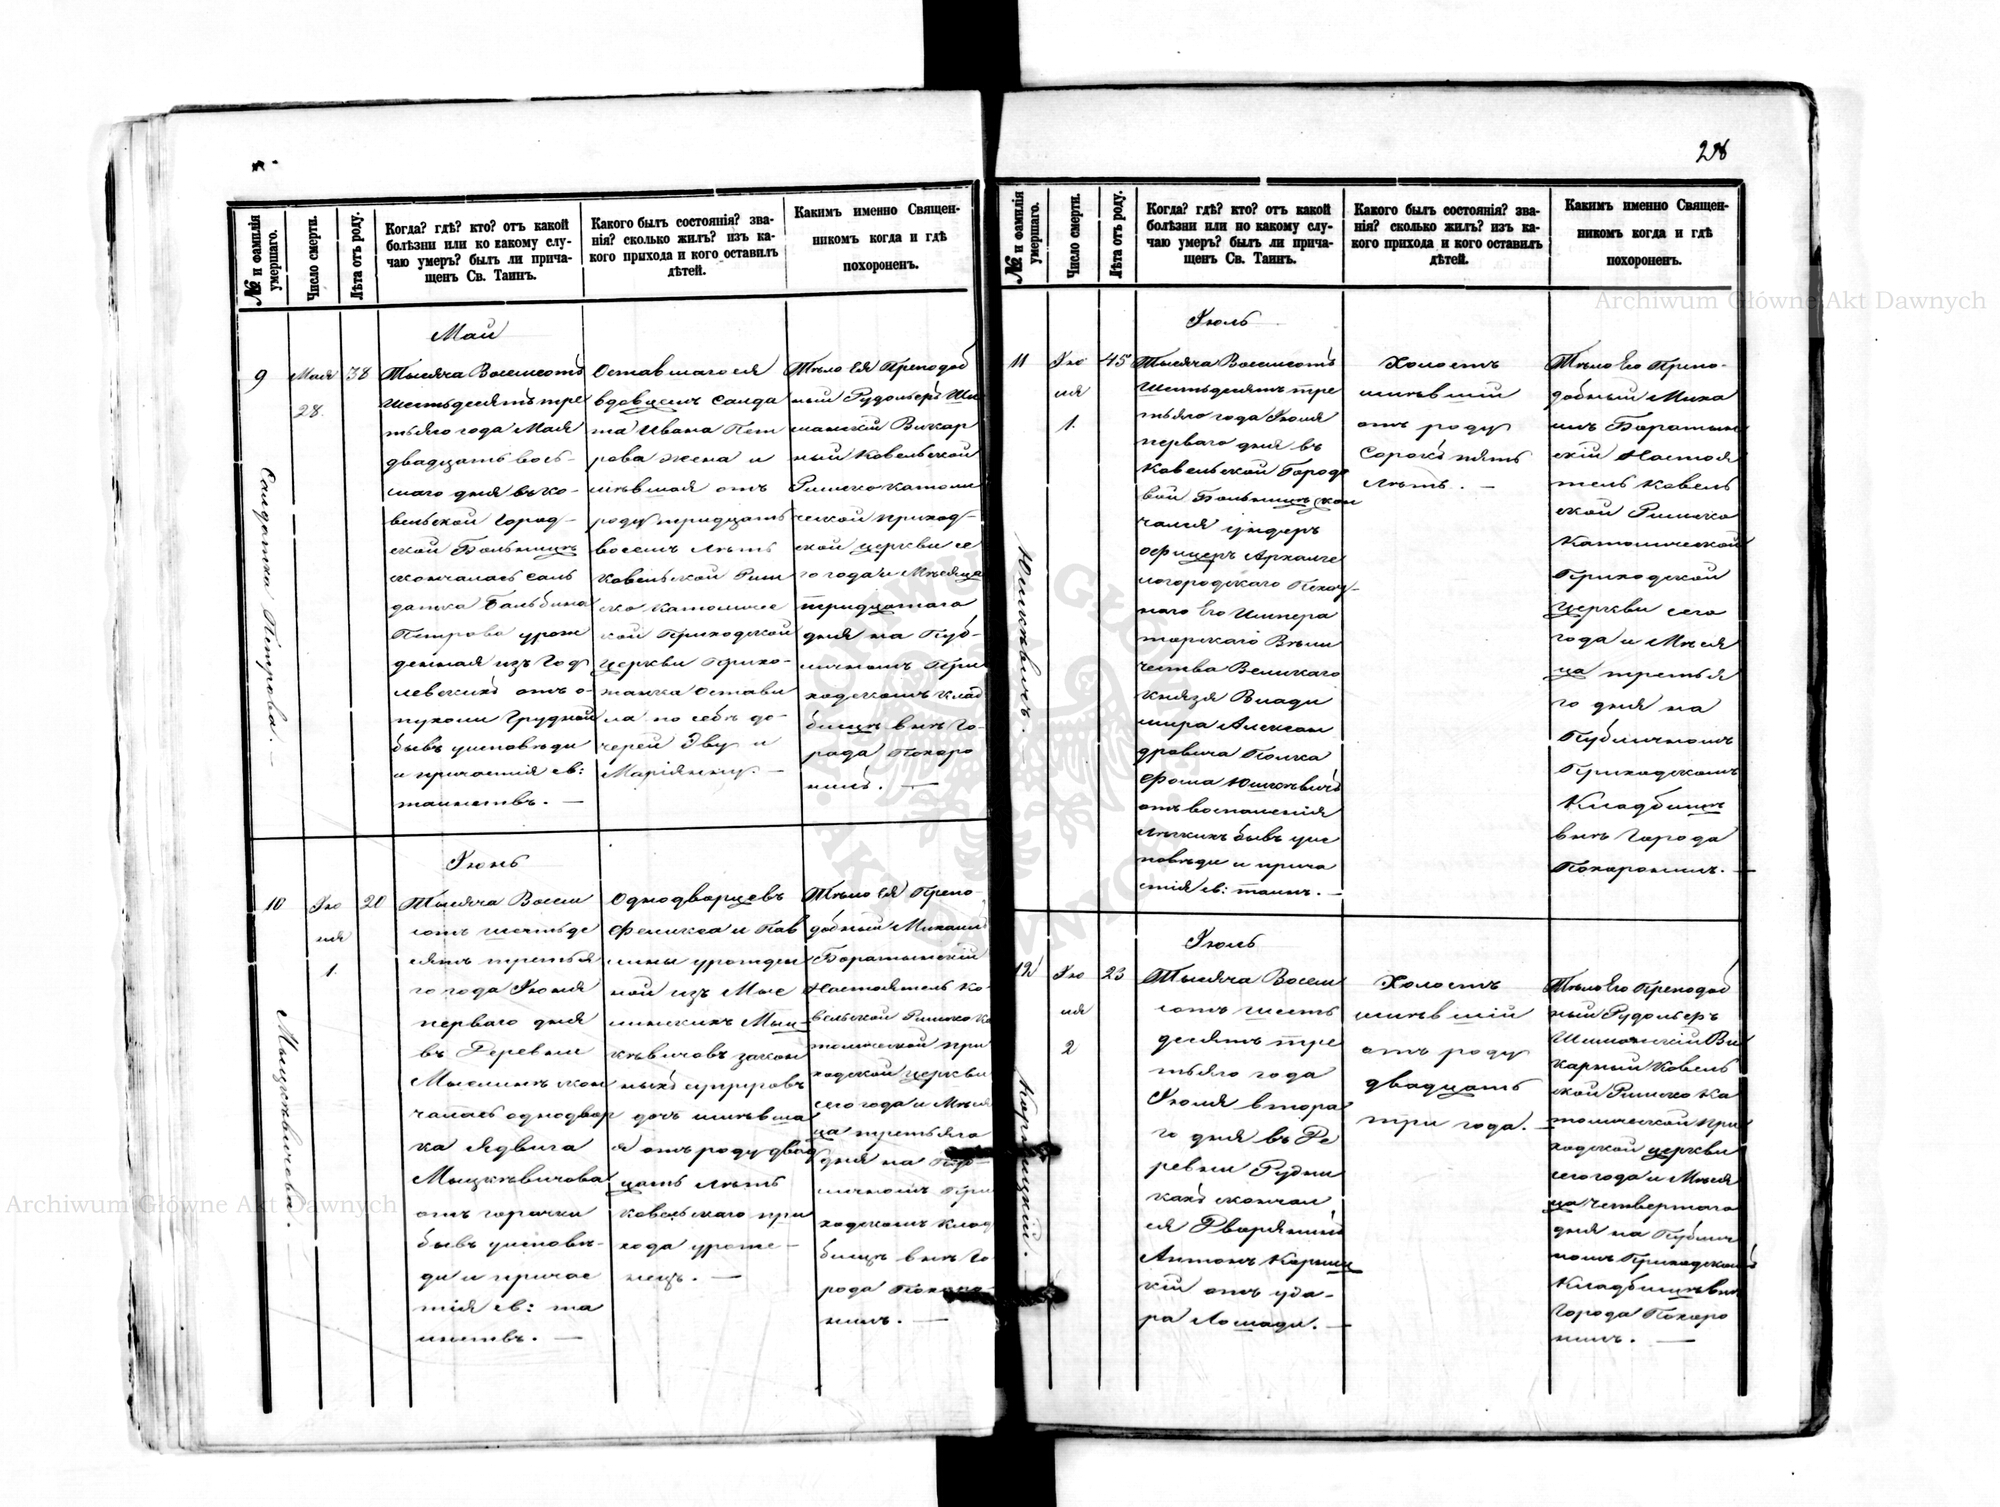 28
№ и фамилія умершаго.
Число смерти.
Лѣта отъ роду.
Когда? гдѣ? кто? отъ какой
болѣзни или ко какому слу-
чаю умеръ? былъ ли прича-
щенъ Св. Таинъ.
Какого былъ состоянія? зва-
нія? сколько жилъ? изъ ка-
кого прихода и кого оставилъ
дѣтей.
Каким​ъ именно Священ-
никомъ когда и гдѣ
похороненъ.
Май
9
Солдатка Петрова. —
Мая
28.
38
Тысяча Восемсотъ
шестьдесятъ тре
тьяго года Мая
двадцать вось-
маго дня въ Ко-
вельской Город-
ской Больницѣ
скончалась Сол
датка Бальбина
Петрова урож
денная изъ Год
левскихъ отъ о-
пухоли Грудной
бывъ исповѣди
и причастія св:
таинствъ. —
Оставшагося
вдовцемъ Солда
та Ивана Пет
рова жена и
имѣвшая отъ
роду тридцать
восемъ лѣтъ
Ковельской Рим
ско Католичес
кой Приходской
церкви Прихо-
жанка Остави
ла по себѣ до-
черей Эву и
Маріянну. —
Тѣло Ея Преподоб
ный Рудольфъ Ши
манскій Викар
ный Ковельской
Римско Католи
ческой приход-
ской церкви се
го года и Мѣсяца
тридцатого
дня на Пуб-
личномъ При
ходскомъ клад
бищѣ внѣ Го-
рода Похоро
нилъ. —
Іюнь
10
Мыцкѣвичова. —
Ію
ня
1.
20
Тысяча Восем
сотъ шестьде
сятъ третья
го года Іюня
перваго дня
въ Деревни
Мыслинѣ скон
чалась однодвор
ка Ядвига
Мыцкѣвичова
отъ горячки
бывъ исповѣ-
ди и причас
тія св: та
инствъ. —
Однодворцевъ
Феликса и Пав
лины урожден
ной изъ Мыс
линскихъ Мыц-
кѣвичовъ закон
ныхъ супруговъ
дочь имѣвша
я отъ роду двад
цать лѣтъ
Ковельскаго при
хода уроже-
нецъ. —
Тѣло Ея Препо-
добный Михаилъ
Баратынскій
Настоятель Ко-
вельской Римско Ка
толической при
ходской церкви
сего года и Мѣся
ца третьяго
дня на Пуб-
личномъ При
ходскомъ клад
бищѣ внѣ Го
рода Похоро-
нилъ. —
№ и фамилія умершаго.
Число смерти.
Лѣта отъ роду.
Когда? гдѣ? кто? отъ какой
болѣзни или ко какому слу-
чаю умеръ? былъ ли прича-
щенъ Св. Таинъ.
Какого былъ состоянія? зва-
нія? сколько жилъ? изъ ка-
кого прихода и кого оставилъ
дѣтей.
Каким​ъ именно Священ-
никомъ когда и гдѣ
похороненъ.
Іюль
11
Юшкѣвичъ. —
Ію
ля
1.
45
Тысяча Восемсотъ
Шестьдесятъ тре
тьяго года Іюля
перваго дня въ
Ковельской Городо
вой Больницѣ скон
чался Ундеръ
Офицеръ Арханге
логородскаго Пехот-
наго Его Импера
торскаго Высо
чества Великаго
князя Влади
мира Алексан
дровича Полка
Фома Юшкѣвичъ
отъ воспаленія
лѣгкихъ бывъ ис
повѣди и прича
стія св: таинъ. —
Холостъ
имѣвшій
отъ роду
Сорокъ пять
лѣтъ. —
Тѣло Его Препо-
добный Миха
илъ Баратын
скій Настоя
тель Ковель
ской Римско
Католической
Приходской
церкви сего
года и Мѣся
ца третья
го дня на
Публичномъ
Приходскомъ
Кладбищѣ
внѣ Города
Похоронилъ. —
Іюль
12
Ію
ля
2
23
Тысяча Восем
сотъ шесть
десятъ тре
тьяго года
Іюля втора
го дня въ Де
ревни Рудни
кахъ скончал
ся Дворянинъ
Антонъ Корниц
кій отъ уда-
ра Лошади. —
Холостъ
имѣвшій
отъ роду
двадцать
три года. —
Тѣло Его Преподоб
ный Рудольфъ
Шиманскій Ви
карный Ковель
ской Римско Ка
толической При
ходской церкви
сего года и Мѣся
ца четвертаго
дня на Публич
номъ Приходскомъ
Кладбищѣ внѣ
Города Похоро
нилъ. —
Archiwum Główne Akt Dawnych
Archiwum Główne Akt Dawnych